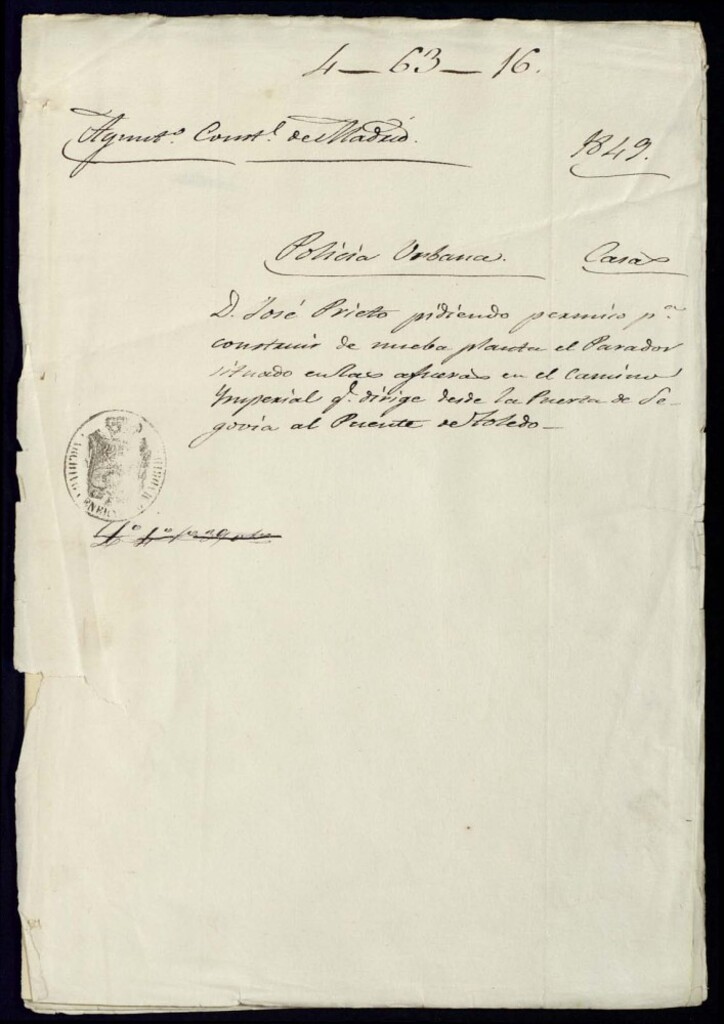 4-63-16.
Ayunto. Constl. de Madrid.
1849.
Policia Urbana.
Casas
D. José Prieto pidiendo permiso pa.
construir de nueba planta el Parador
situado en las afueras en el Camino
Ymperial q. dirige desde la Puerta de Se-
govia al Puente de Toledo-
ARCHIVO GENERAL MADRID